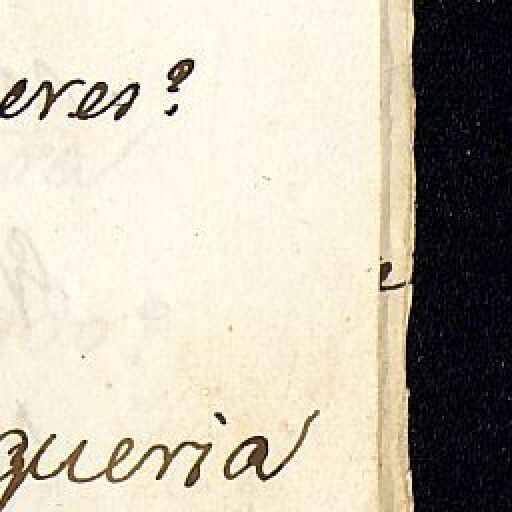 eres?
queria